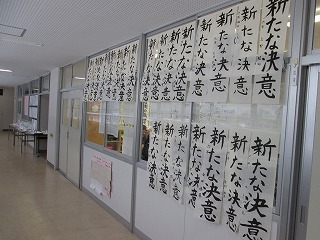 新たな決意
新たな決意
新たな決意
新たな決意
新たな決意
新たな決意
新たな決意
新たな決意
新たな決意
新たな決意
新たな決意
新たな決意
新たな決意
新たな決意
新たな決意
新たな決意